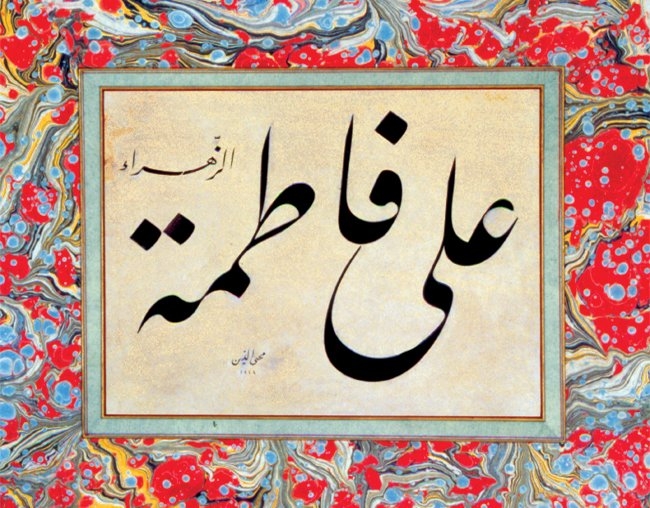 علی فاطمة
الزّهراء
محيى الدين